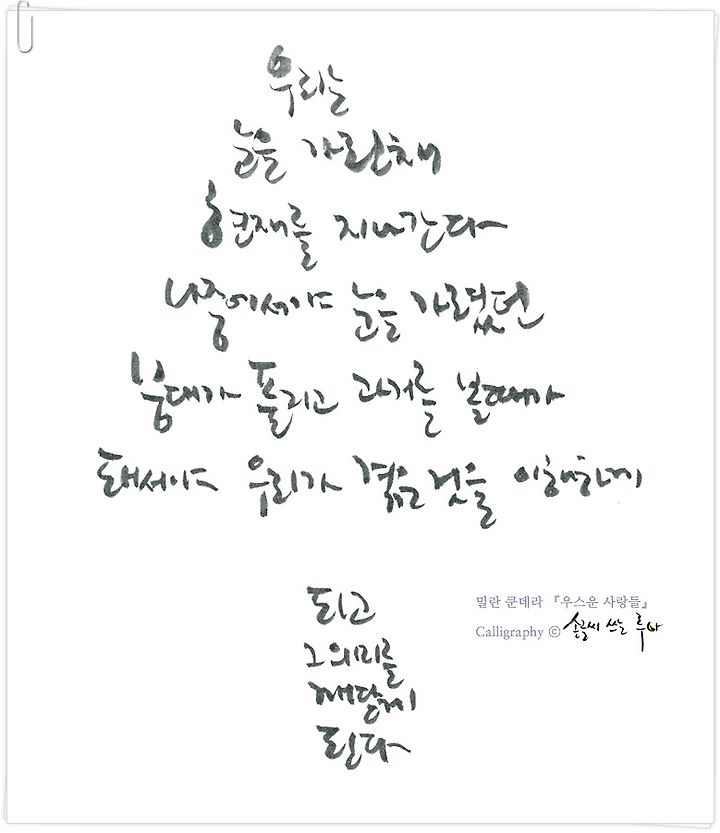 우리는
눈을 가린채
현재를 지나간다
나중에서야 눈을 가렸던
붕대가 풀리고 과거를 볼때가
돼서야 우리가 겪은것을 이해하게
되고
그의미를
깨닫게
된다
밀란 쿤데라 『우스운 사랑들』
Calligraphy © 손글씨 쓰는 루아